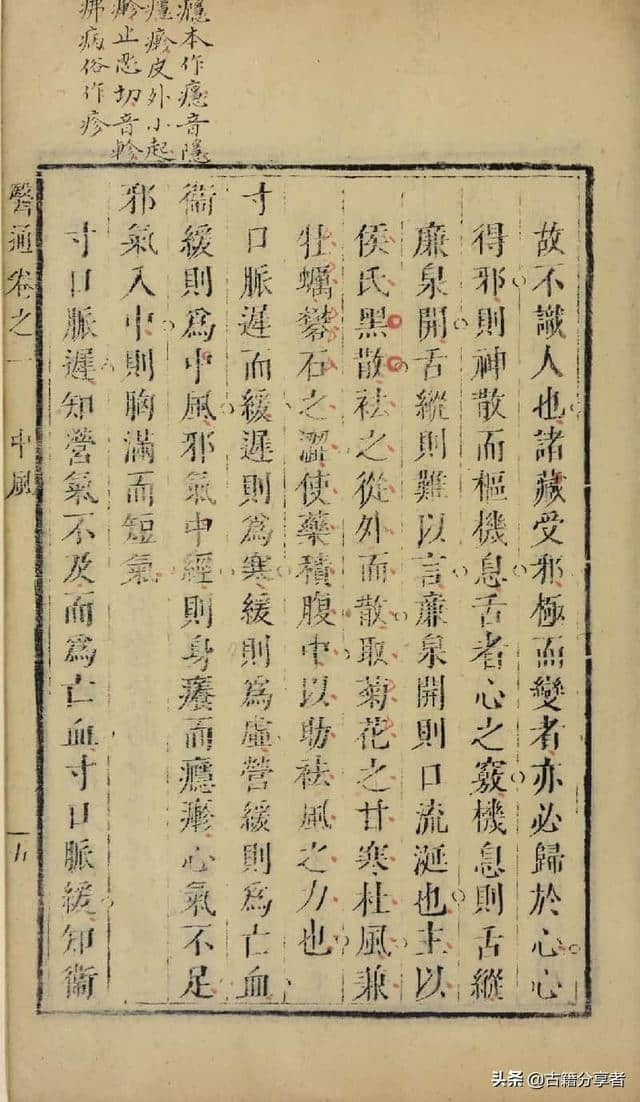 癮本作癮音隱
癮㾦皮外小起
㾦止忍切音軫
痹病俗作疹
故不識人也諸藏受邪極而變者亦必歸於心心
得邪則神散而樞機息舌者心之竅機息則舌縱
廉泉開舌縱則難以言廉泉開則口流涎也主以
侯氏黑散祛之從外而散取菊花之甘寒杜風兼
牡蠣礬石之澀使藥積腹中以助祛風之力也
寸口脈遲而緩遲則爲寒緩則爲虛營緩則爲亡血
衞緩則爲中風邪氣中經則身癢而癮㾦心氣不足
邪氣入中則胸滿而短氣
寸口脈遲知營氣不及而爲亡血寸口脈緩知衞
醫通卷之一 中風 十五
头条 @古籍分享者